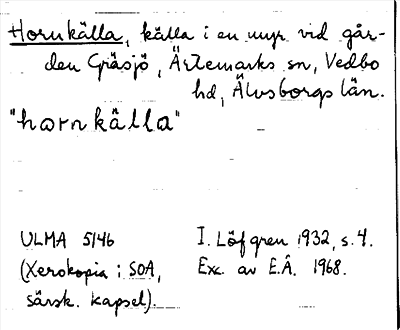 Hornkälla, källa i en myr vid går-
den Gräsjö, Ärtemarks sn, Vedbo
hd, Älvsborgs län.
"hornkälla"
ULMA 5146
(Xerokopia i SOA,
särsk. kapsel).
I. Löfgren 1932, s. 4.
Exc. av E.Â. 1968.